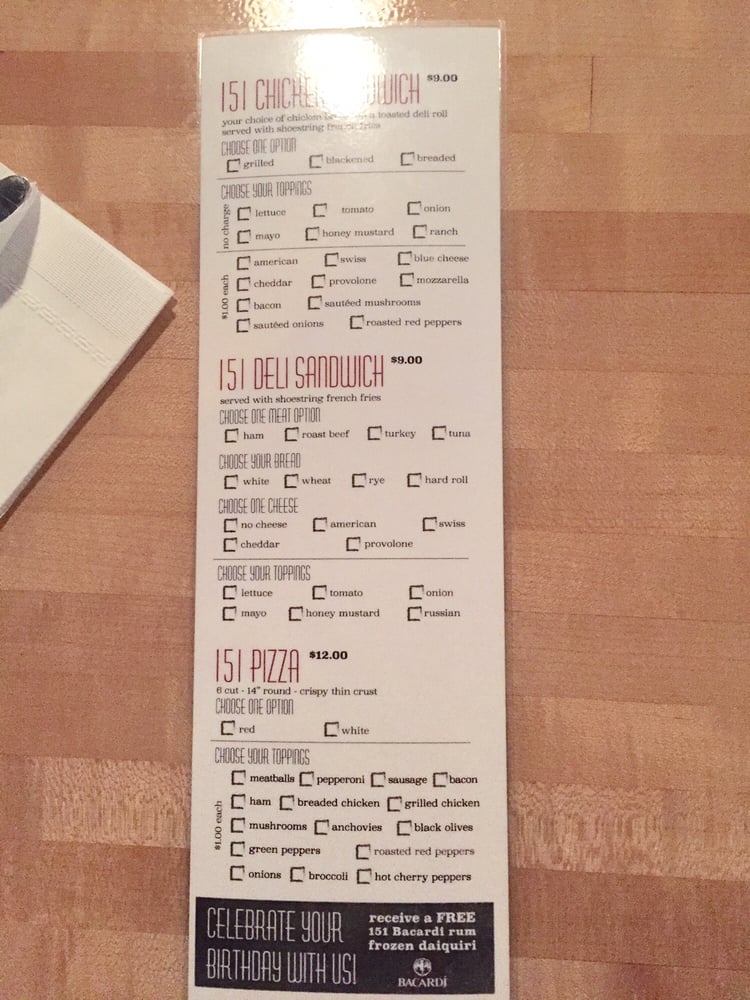 151 CHICKEN SANDWICH $9.00
your choice of chicken a toasted deli roll
served with shoestring french fries
CHOOSE ONE OPTION
grilled blackened breaded
CHOOSE YOUR TOPPINGS
no charge
lettuce tomato onion
mayo honey mustard ranch
$1.00 each
american swiss blue cheese
cheddar provolone mozzarella
bacon sautéed mushrooms
sautéed onions roasted red peppers
151 DELI SANDWICH $9.00
served with shoestring french fries
CHOOSE ONE MEAT OPTION
ham roast beef turkey tuna
CHOOSE YOUR BREAD
white wheat rye hard roll
CHOOSE ONE CHEESE
no cheese american swiss
cheddar provolone
CHOOSE YOUR TOPPINGS
lettuce tomato onion
mayo honey mustard russian
151 PIZZA $12.00
6 cut - 14" round - crispy thin crust
CHOOSE ONE OPTION
red white
CHOOSE YOUR TOPPINGS
$1.00 each
meatballs pepperoni sausage bacon
ham breaded chicken grilled chicken
mushrooms anchovies black olives
green peppers roasted red peppers
onions broccoli hot cherry peppers
CELEBRATE YOUR
BIRTHDAY WITH US!
receive a FREE
151 Bacardi rum
frozen daiquiri
BACARDÍ